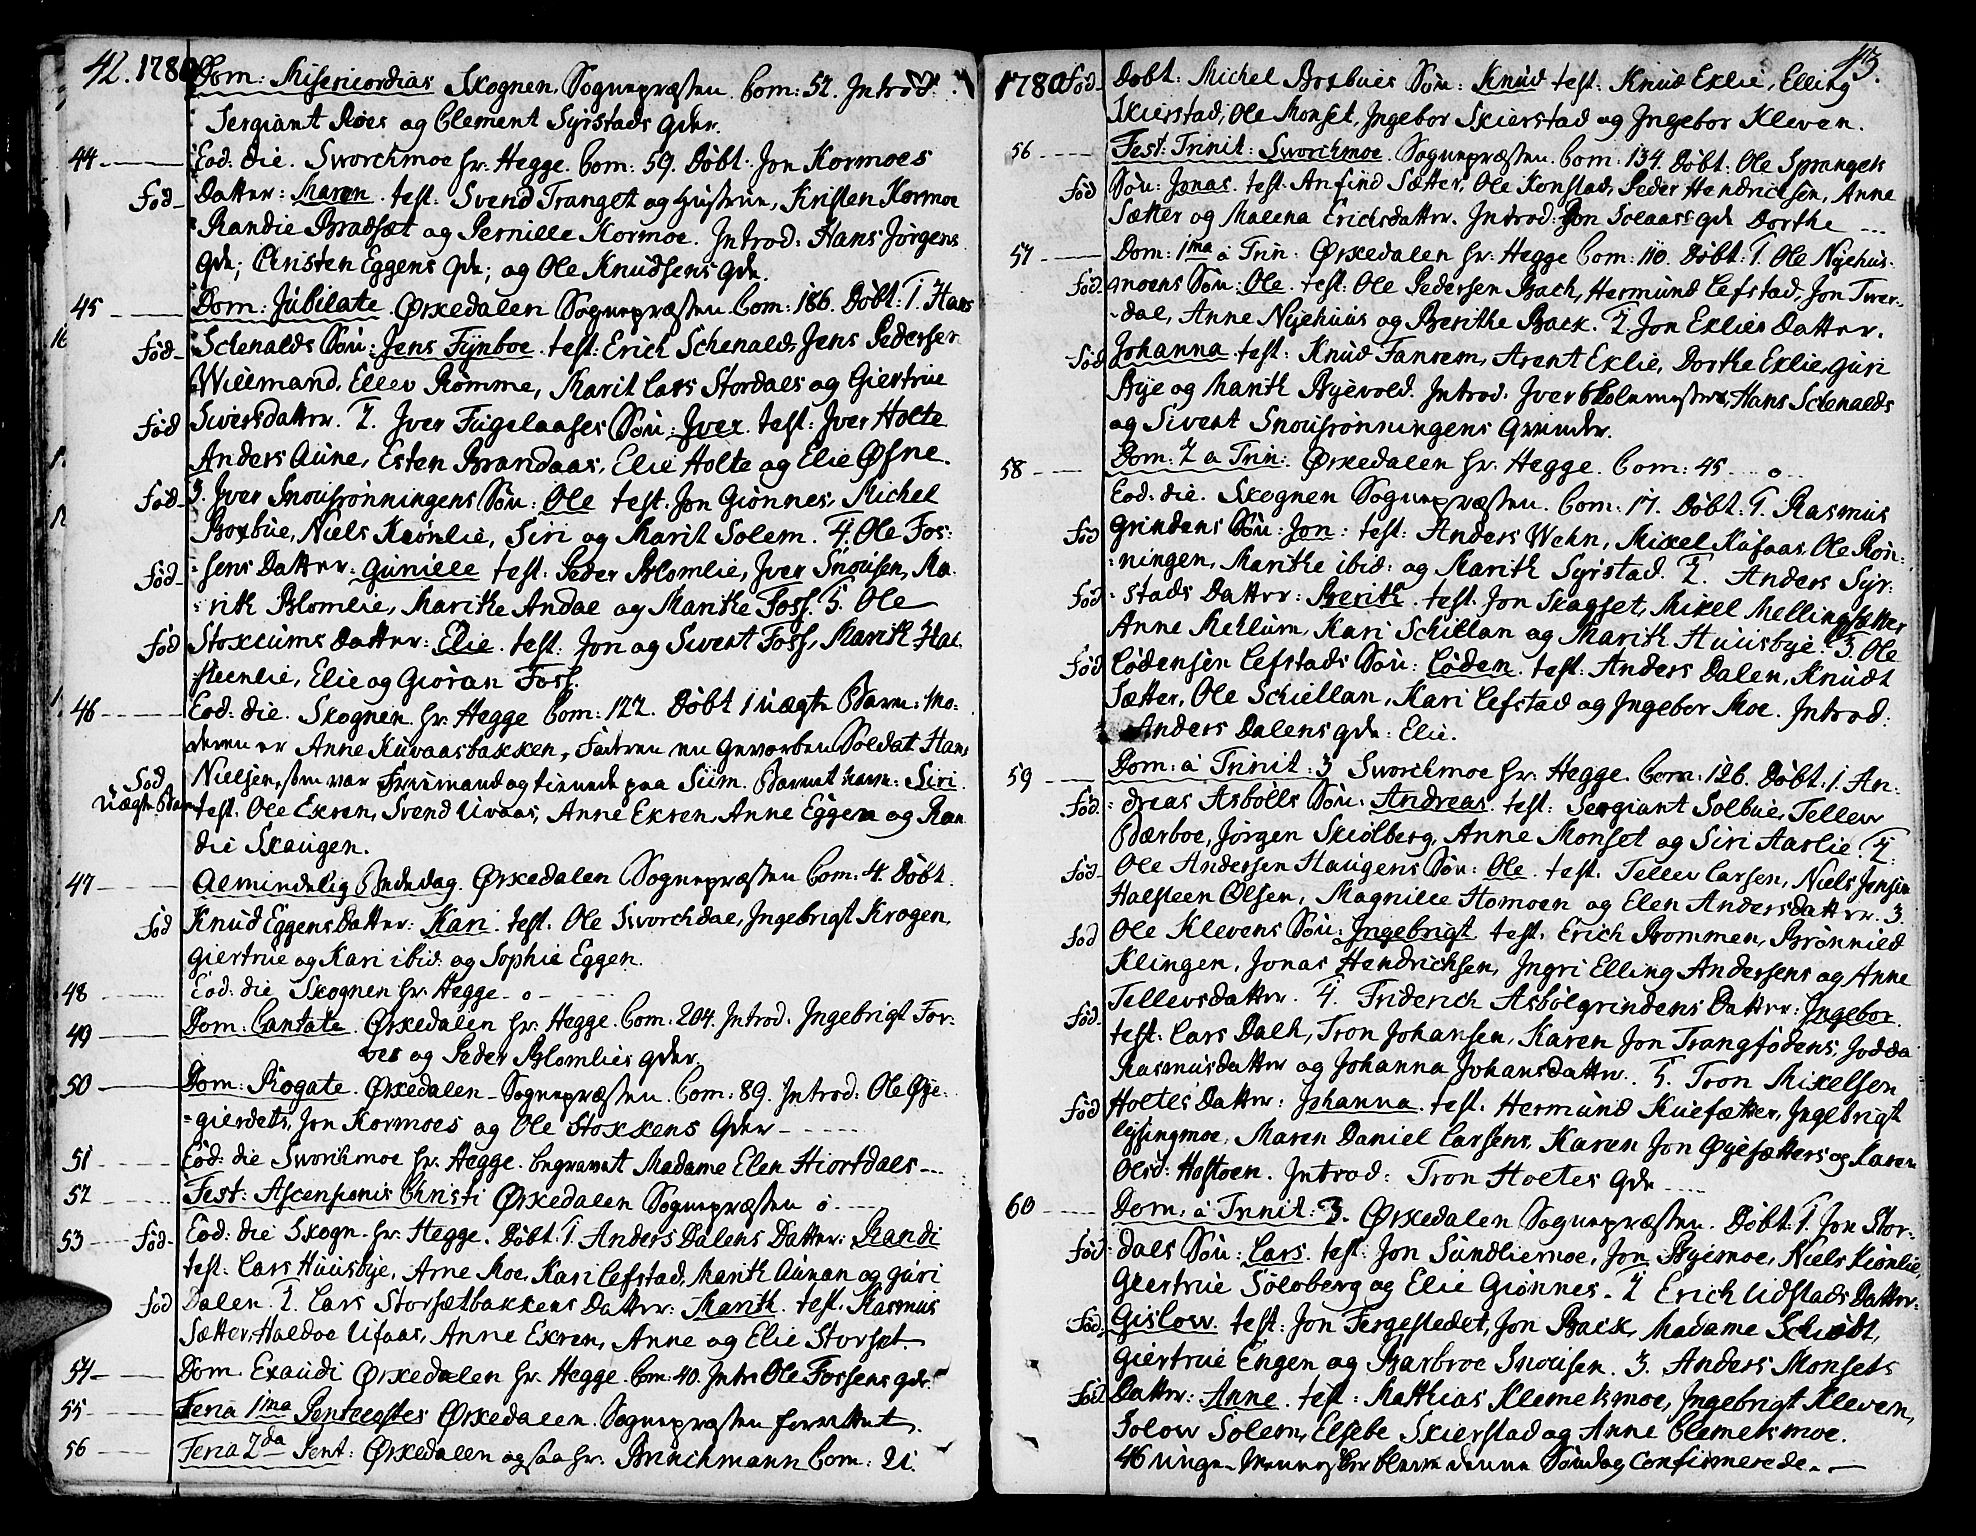 42. 1780 Dom: Misericordias Skognen. Sognepræsten Com: 52. Introd:
Sergiant Roes og Clement Syrstads qder.
44 Eod: die. Sworchmoe hr: Hegge. Com: 59. Døbt: Jon Kormoes
Fød Datter: Maren. test: Svend Tranget og Hustrue, Kristen Kormoe
Randie Bradset og Pernille Kormoe. Introd: Hans Jørgens
qde; Christen Eggens qde; og Ole Knudsens qde.
45 Dom: Jubilate. Ørkedalen Sognepræsten Com: 186. Døbt: 1. Hans
Fød Sclenalds Søn: Jens Fynboe. test: Erich Schenald, Jens Pedersen
Willmand, Ellev Rømme, Marit Lars Stordals og Giertrue
Fød Siversdatter. 2. Iver Fugelaases Søn: Iver. test: Iver Holte
Anders Aune, Esten Brandaas, Elie Holte og Elie Øfne.
Fød 3. Iver Snousrønningens Søn: Ole test: Jon Giønnes, Michel
Boxbue, Niels Kiønlie, Siri og Marit Solem. 4. Ole Fos-
Fød sens Datter: Gunille test: Peder Blomlie, Iver Snousen, Ma-
rith Blomlie, Marithe Andal og Marithe Foss. 5. Ole
Fød Stokkums Datter: Elie. test: Jon og Sivert Foss, Marith Hal
steenlie, Elie og Giøran Foss.
46 Eod: die. Skognen hr: Hegge Com: 122. Døbt 1 uægte Barn: Mo-
deren er Anne Kuvaasbakken, Fadren en gevorben Soldat Hans
Fød Nielsen, som var Friemand og tienede paa Siim. Barnet navn: Siri.
Uægte Barn test: Ole Ekren, Svend Uvaas, Anne Ekren, Anne Eggen og Ran
die Skaugen.
47 Almindelig Bededag. Ørkedalen Sognepræsten Com: 4. Døbt.
Fød Knud Eggens Datter: Kari. test: Ole Sworchdal, Ingebrigt Krogen,
Giertrue og Kari ibid: og Sophie Eggen.
48 Eod: die Skognen hr: Hegge - o -
49 Dom: Cantate. Ørkedalen hr: Hegge. Com: 204. Introd. Ingebrigt For-
ves og Peder Blomlies qder.
50 Dom: Rogate. Ørkedalen Sognepræsten. Com: 89. Introd: Ole Øye-
gierdets, Jon Kormoes og Ole Stokkens Qder
51 Eod: die Sworchmoe hr: Hegge. begravet Madame Elen Hiortdals
52 Fest: Ascensionis Christi Ørkedalen Sognepræsten o.
53 Fød Eod: die Skogn. hr: Hegge. Døbt: 1. Anders Dalens Datter: Randi
test: Lars Huusbye, Arne Moe, Kari Lefstad, Marith Aunan og Guri
Fød Dalen. 2. Lars Storsætbakkens Datter: Marith. test. Rasmus
Sætter, Haldoe Ufaas, Anne Ekren, Anne og Elie Storset.
54 Dom. Exaudi Ørkedalen hr. Hegge. Com: 40. Intr: Ole Fossens qde.
55 Feria 1ma Pentecostes Ørkedalen. Sognepræsten forrettet.
56 Feria 2da Pent: Ørkedalen ogsaa hr. Brüchmann Com: 21.
43.
1780 Fød Døbt: Michel Boxbues Søn: Knud test: Knud Exlie, Elling
Skierstad, Ole Monset, Ingebor Skierstad og Ingebor Kleven.
56 Fest: Trinit: Sworchmoe. Sognepræsten. Com: 134. Døbt: Ole Sprangets
Fød Søn: Jonas. test: Anfind Sætter, Ole Konstad, Peder Hendrichsen, Anne
Sætter og Malena Erichsdatter. Introd: Jon Solaas qde Dorthe
57 Dom: 1ma a Trin: Ørkedalen hr: Hegge Com: 110. Døbt: 1. Ole Nyehus-
Fød moens Søn: Ole. test: Ole Pedersen Bach, Hermund Lefstad, Jon Twer-
dal, Anne Nyehuus og Berithe Back. 2 Jon Exlies Datter.
Fød Johanna. test: Knud Fanrem, Arent Exlie, Dorthe Exlie, Guri
Bye og Marith Byevold. Introd. Iver Skolemesters, Hans Sclenalds
og Sivert Snousrønningens Qvinder.
58 Dom: 2 a Trin: Ørkedalen hr: Hegge. Com: 45. o
Eod: die. Skognen Sognepræsten. Com: 17. Døbt: 1. Rasmus
Fød Grindens Søn: Jon: test: Anders Wehn, Mikel Kufaas, Ole Røn-
ningen, Marithe ibid: og Marith Syrstad. 2. Anders Syr-
Fød stads Datter: Berith. test. Jon Skagset, Mikel Mellingsætter
Anne Mellum, Kari Schillan og Marith Huusbye. 3. Ole
Fød Lodensen Lefstads Søn: Loden. test: Anders Dalen, Knudt
Sætter, Ole Schiellan, Kari Lefstad og Ingebor Moe. Introd:
Anders Dalens qde: Elie.
59 Dom: a Trinit: 3 Sworchmoe hr: Hegge. Com: 126. Døbt: 1. An-
Fød dreas Asbølls Søn: Andreas. test: Sergiant Solbue, Tellev
Bærboe, Jørgen Skiølberg, Anne Monset og Siri Aarlie. 2.
Fød Ole Andersen Haugens Søn: Ole. test. Tellev Larsen, Niels Jensen
Halsteen Olsen, Magnille Homoen og Elen Andersdatter. 3
Fød Ole Klevens Søn: Ingebrigt test. Erich Brommen, Brønnild
Klingen, Jonas Hendrichsen, Ingri Elling Andersens og Anne
Tellevsdatter. 4. Friderich Asbølgrindens Datter: Ingebor.
Fød test: Lars Dalh, Tron Johansen, Karen Jon Trangfodens, Jodda
Rasmusdatter og Johanna Johansdatter. 5. Tron Mikelsen
Fød Holtes Datter: Johanna. test. Hermund Kuefætter, Ingebrigt
Lysingmoe, Maren Daniel Larsens, Karen Jon Øyesætters og Karen
Olsd: Hoftoen. Introd: Tron Holtes Qde
60 Dom. a Trinit: 3. Ørkedalen Sognepræsten. Døbt: 1. Jon Stor-
Fød dals Søn: Lars. test: Jon Sundliemoe, Jon Byemoe, Niels Kiønlie,
Giertrue Soloberg og Elie Giønnes. 2 Erich Udstads Datter:
Fød Gislow. test: Jon Fergestedet, Jon Back, Madame Schiøbt,
Giertrue Engen og Barbroe Snousen. 3. Anders Monsets
Fød Datter: Anne. test: Matthias Klemetsmoe, Ingebrigt Kleven,
Solow Solem, Elsebe Skierstad og Anne Clemetsmoe.
46 unge Mennesker bleve denne Søndag confirmerede.